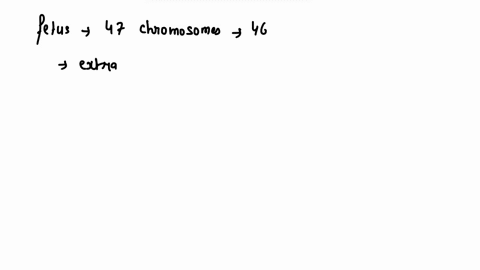 fetus → 47 chromosomes → 46
→ extra